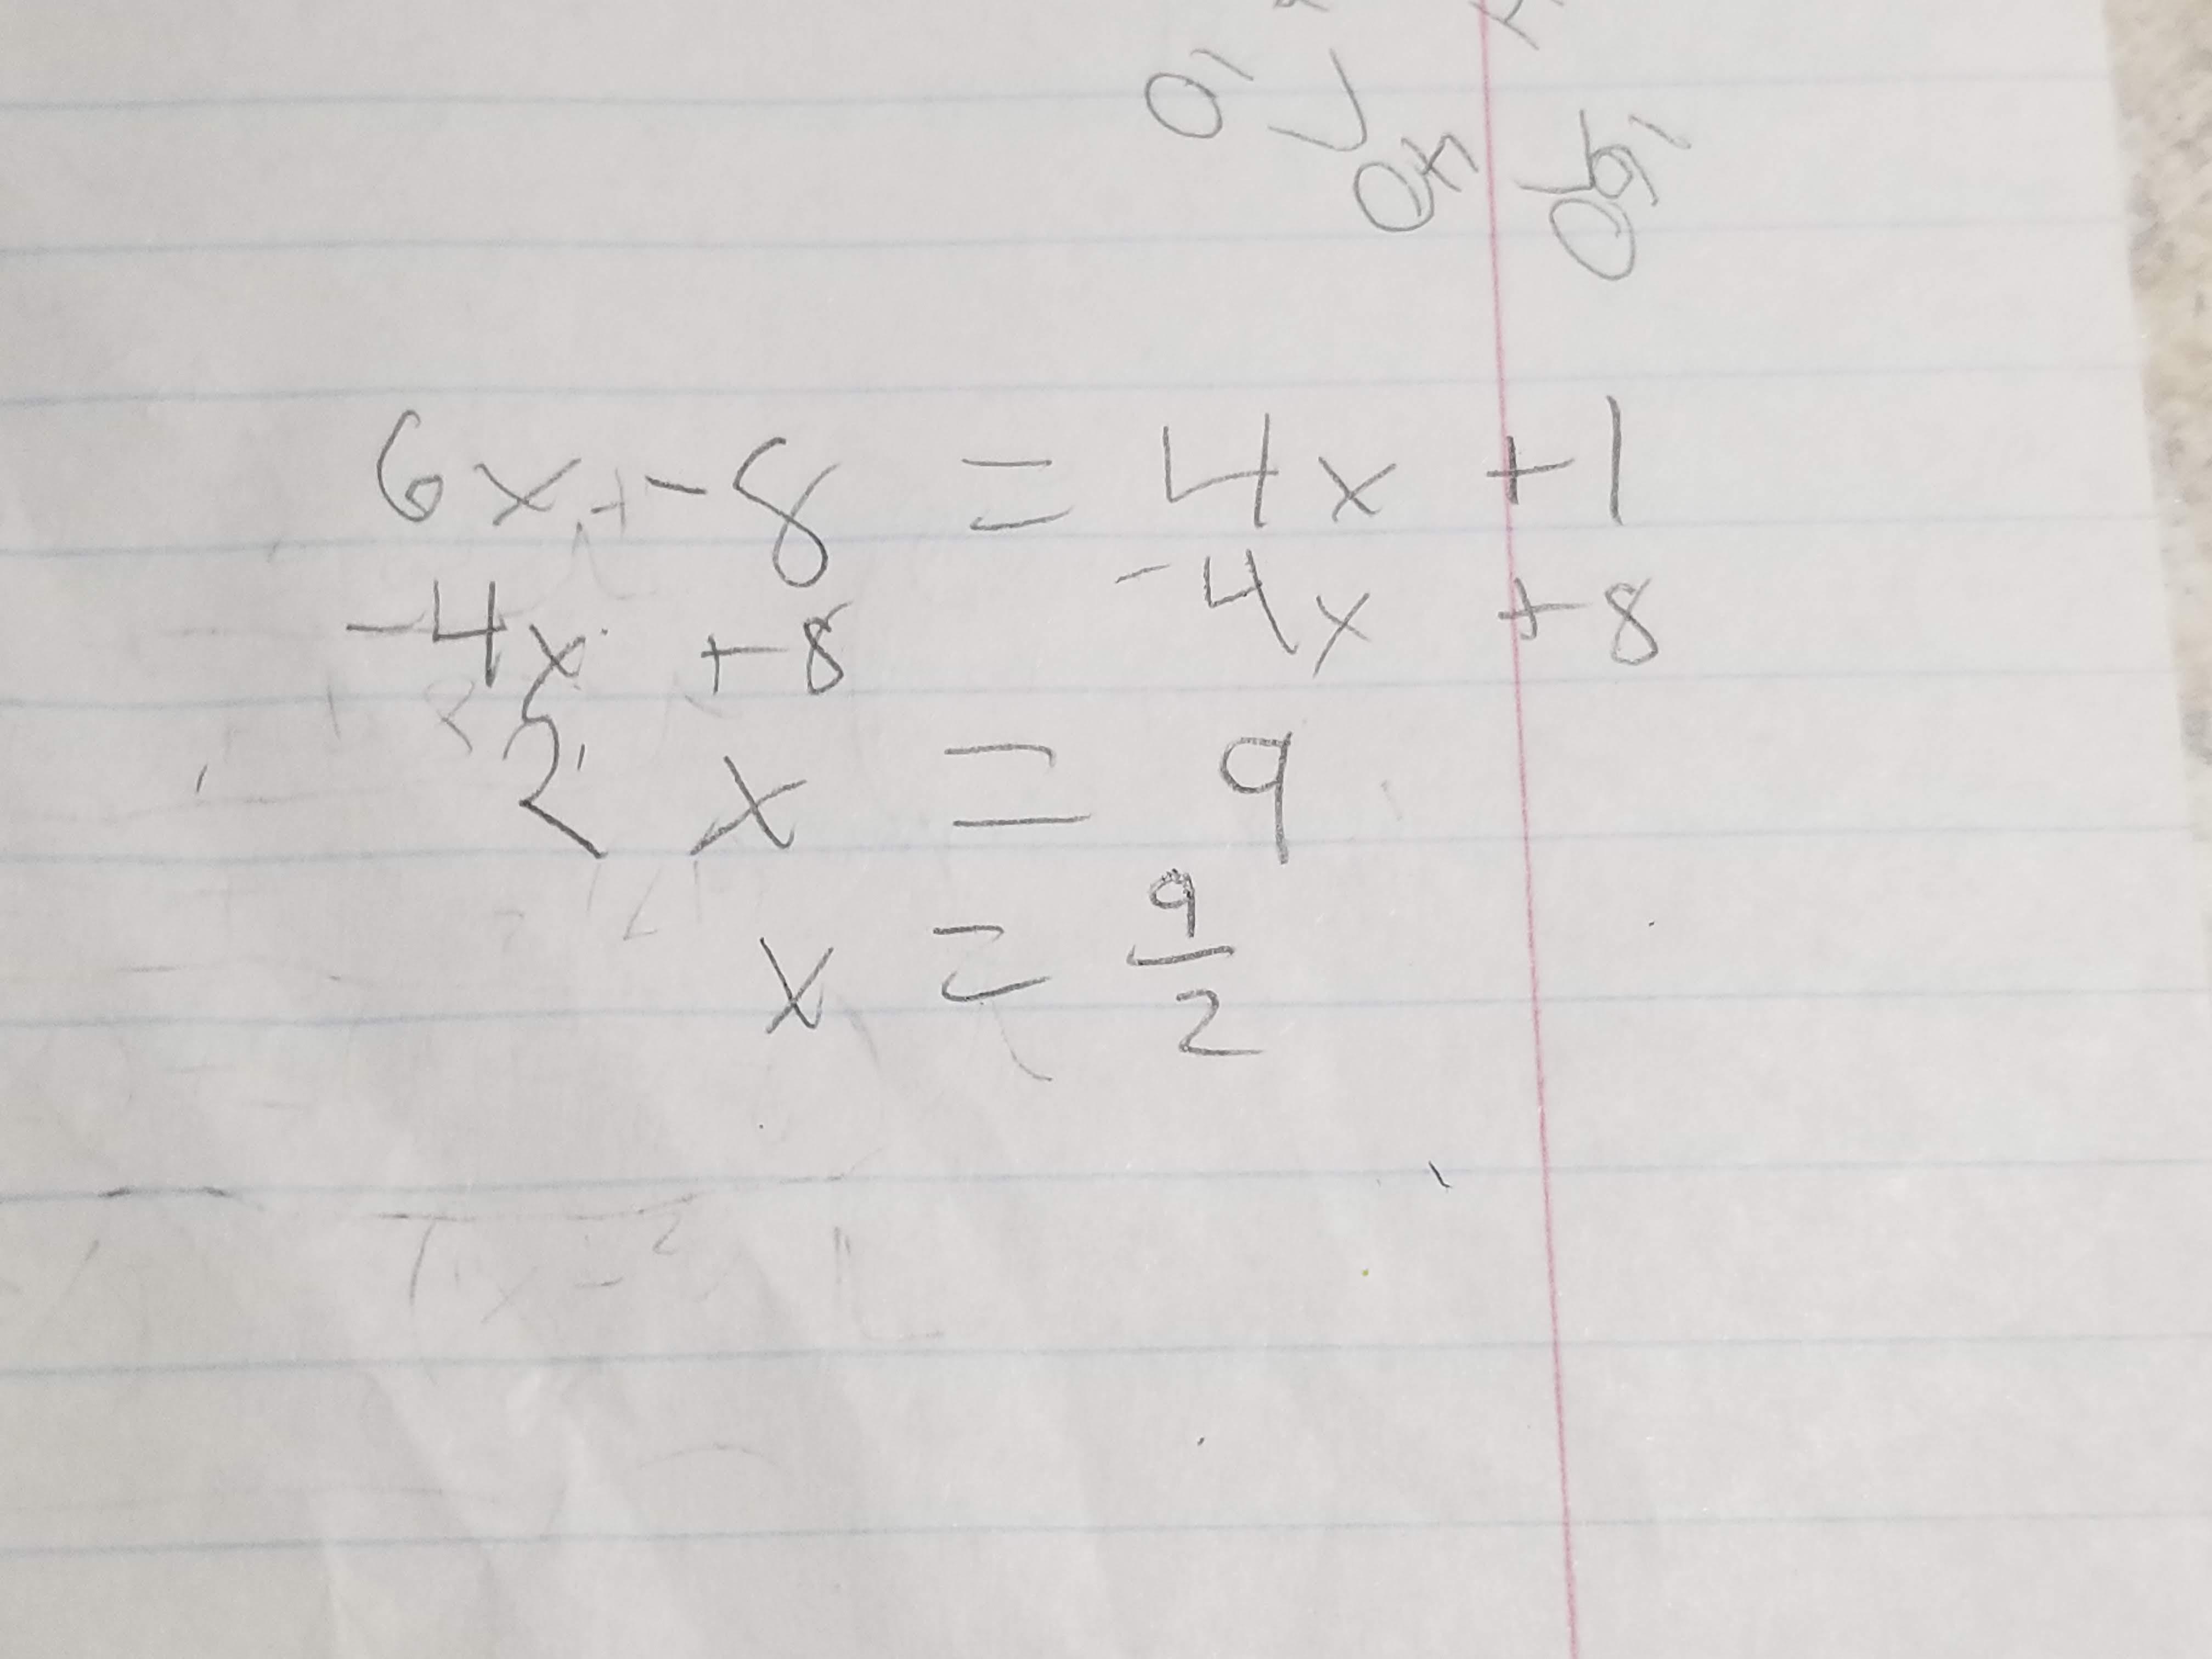 6x + -8 = 4x +1
-4x +8 -4x +8
2x = 9
x = 9/2